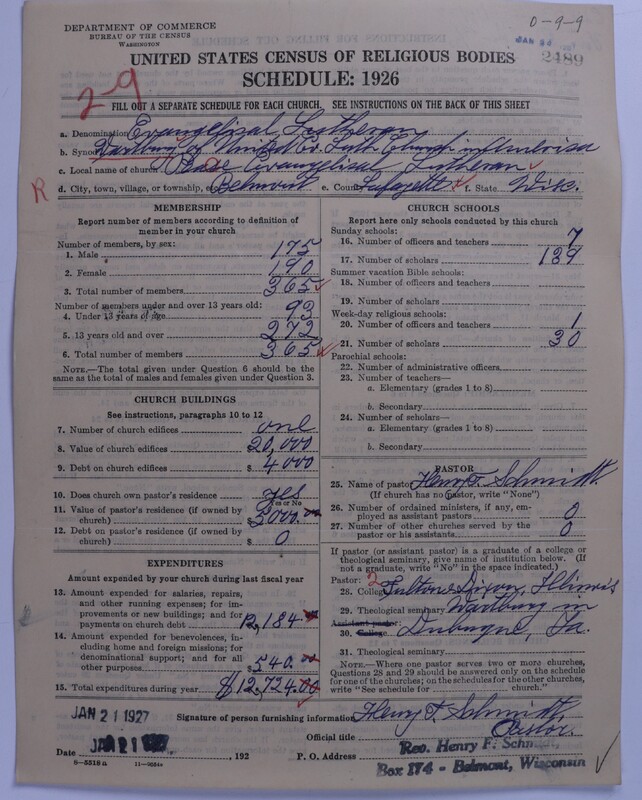 DEPARTMENT OF COMMERCE
BUREAU OF THE CENSUS
WASHINGTON
0-9-9
2489
UNITED STATES CENSUS OF RELIGIOUS BODIES
SCHEDULE: 1926
29
FILL OUT A SEPARATE SCHEDULE FOR EACH CHURCH. SEE INSTRUCTIONS ON THE BACK OF THIS SHEET
a. Denomination Evangelical Lutheran
b. Synod Wartburg of United Ev. Luth. Church in America
c. Local name of church Evangelical Lutheran
R
d. City, town, village, or township, Belmont e. County Lafayette f. State Wisc.
MEMBERSHIP
Report number of members according to definition of member in your church
Number of members, by sex:
1. Male 175
2. Female 190
3. Total number of members 365
Number of members under and over 13 years old:
4. Under 13 years of age 93
5. 13 years old and over 272
6. Total number of members 365
NOTE.—The total given under Question 6 should be the same as the total of males and females given under Question 3.
CHURCH BUILDINGS
See instructions, paragraphs 10 to 12
7. Number of church edifices one
8. Value of church edifices $ 20,000
9. Debt on church edifices $ 4000
10. Does church own pastor's residence yes
Yes or No
11. Value of pastor's residence (if owned by church) $ 5000.
12. Debt on pastor's residence (if owned by church) $ 0
EXPENDITURES
Amount expended by your church during last fiscal year
13. Amount expended for salaries, repairs, and other running expenses; for improvements or new buildings; and for payments on church debt 12,184
14. Amount expended for benevolences, including home and foreign missions; for denominational support; and for all other purposes $ 540.
15. Total expenditures during year $12,724.00
CHURCH SCHOOLS
Report here only schools conducted by this church
Sunday schools:
16. Number of officers and teachers 7
17. Number of scholars 139
Summer vacation Bible schools:
18. Number of officers and teachers
19. Number of scholars
Week-day religious schools:
20. Number of officers and teachers 1
21. Number of scholars 30
Parochial schools:
22. Number of administrative officers
23. Number of teachers—
a. Elementary (grades 1 to 8)
b. Secondary
24. Number of scholars—
a. Elementary (grades 1 to 8)
b. Secondary
PASTOR
25. Name of pastor Henry F. Schmidt.
(If church has no pastor, write "None")
26. Number of ordained ministers, if any, employed as assistant pastors 0
27. Number of other churches served by the pastor or his assistants 0
If pastor (or assistant pastor) is a graduate of a college or theological seminary, give name of institution below. (If not a graduate, write "No" in the space indicated.)
Pastor: 2
28. College Fulton Dixon, Illinois
29. Theological seminary Wartburg in
Assistant pastor:
30. College Dubuque, Ia.
31. Theological seminary
NOTE.—Where one pastor serves two or more churches, Questions 28 and 29 should be answered only on the schedule for one of the churches; on the schedules for the other churches, write "See schedule for church."
JAN 21 1927
Signature of person furnishing information Henry F. Schmidt,
Official title Pastor.
Date JAN 21 1927, 192
P. O. Address Rev. Henry F. Schmidt,
Box 174 - Belmont, Wisconsin
8-5518 a